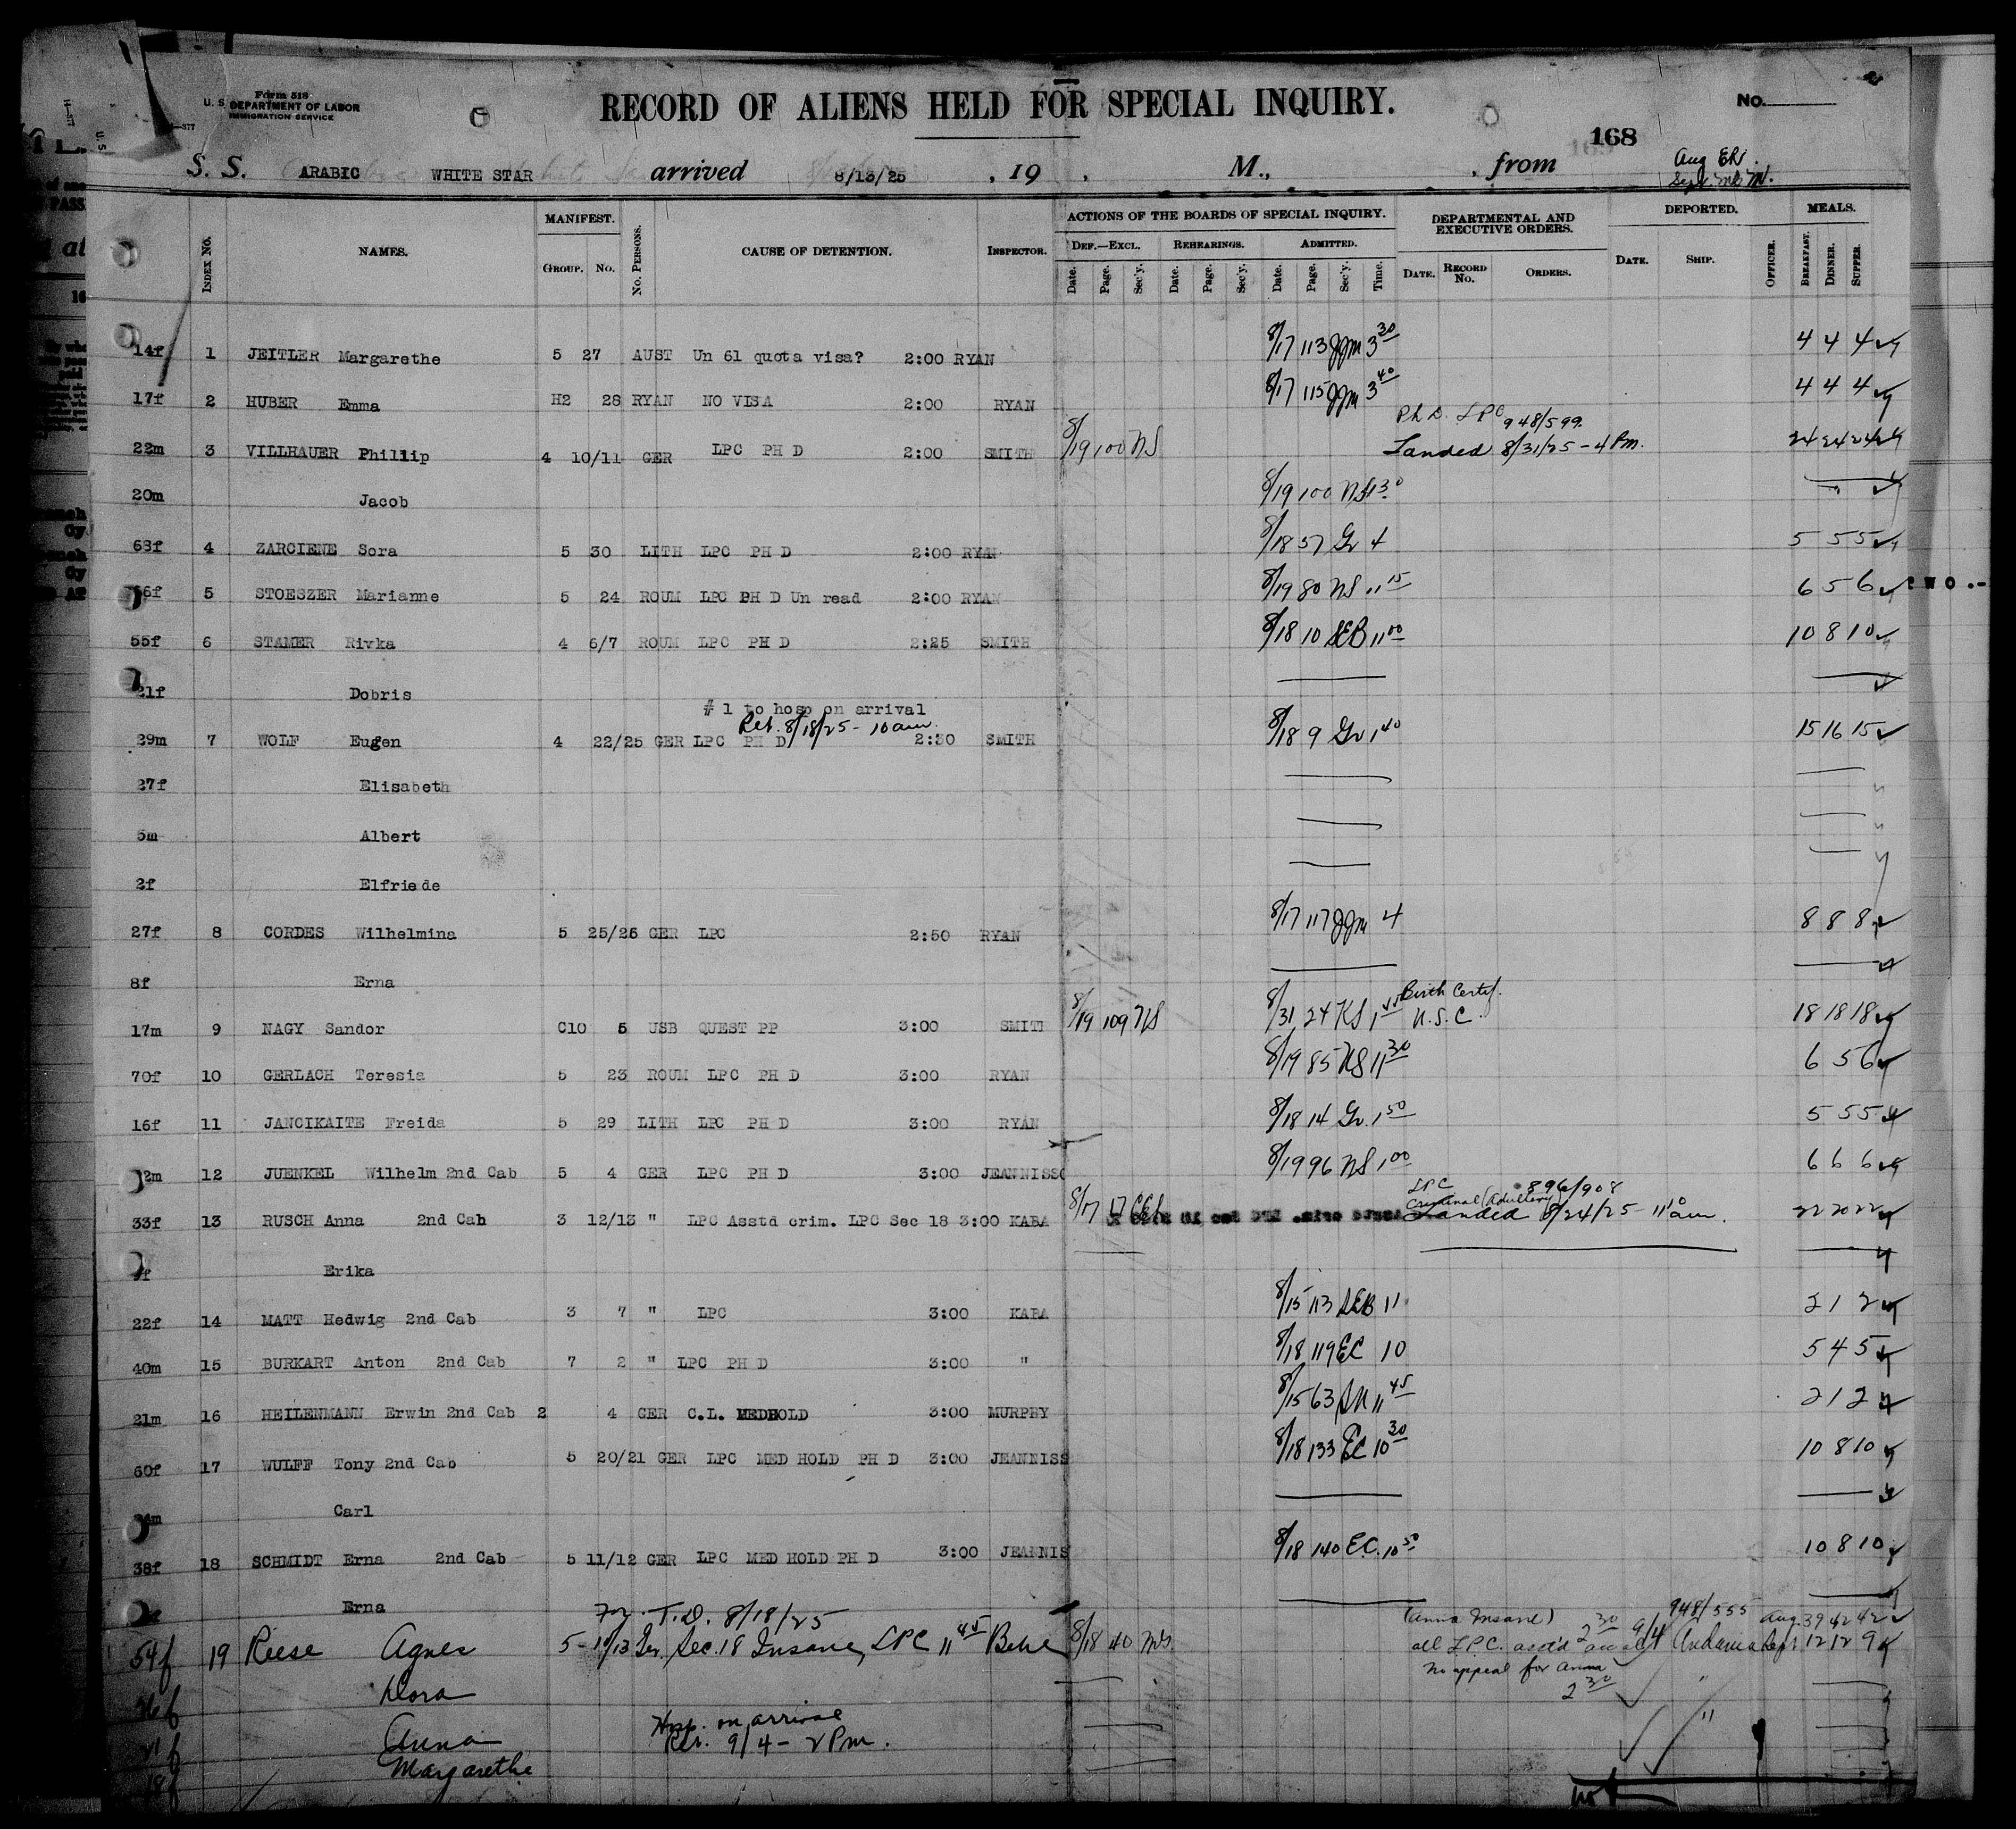 Form 518
U. S. DEPARTMENT OF LABOR
IMMIGRATION SERVICE
RECORD OF ALIENS HELD FOR SPECIAL INQUIRY.
No.
168
S. S. ARABIC WHITE STAR arrived 8/13/25 , 19 , M., , from
Aug
Sept.
INDEX NO. NAMES. MANIFEST. GROUP. NO. NO. PERSONS. CAUSE OF DETENTION. INSPECTOR. ACTIONS OF THE BOARDS OF SPECIAL INQUIRY. DEF.—EXCL. Date. Page. Sec'y. REHEARINGS. Date. Page. Sec'y. ADMITTED. Date. Page. Sec'y. Time. DEPARTMENTAL AND EXECUTIVE ORDERS. DATE. RECORD NO. ORDERS. DEPORTED. DATE. SHIP. OFFICER. MEALS. BREAKFAST. DINNER. SUPPER.
14f 1 JEITLER Margarethe 5 27 AUST Un 61 quota visa? 2:00 RYAN 8/17 113 JJM 3 30 4 4 4
17f 2 HUBER Emma H2 28 RYAN NO VISA 2:00 RYAN 8/17 115 JJM 3 40 4 4 4
Ph D. LPC 948/599.
22m 3 VILLHAUER Phillip 4 10/11 GER LPC PH D 2:00 SMITH 8/19 100 NS Landed 8/31/25 - 4 Pm. 24 24 24
20m Jacob 8/19 100 NS
68f 4 ZARCIENE Sora 5 30 LITH LPC PH D 2:00 RYAN 8/18 57 Gr 4 5 5 5
6f 5 STOESZER Marianne 5 24 ROUM LPC PH D Un read 2:00 RYAN 8/19 80 NS 11 15 6 5 6
55f 6 STAMER Rivka 4 6/7 ROUM LPC PH D 2:25 SMITH 8/18 10 SEB 11 00 10 8 10
21f Dobris
# 1 to hosp on arrival
Ret. 8/18/25 - 10 am.
29m 7 WOLF Eugen 4 22/25 GER LPC PH D 2:30 SMITH 8/18 9 Gr 1 40 15 16 15
27f Elisabeth
5m Albert
2f Elfriede
27f 8 CORDES Wilhelmina 5 25/26 GER LPC 2:50 RYAN 8/17 117 JJM 4 8 8 8
8f Erna
Birth Certif.
17m 9 NAGY Sandor C10 5 USB QUEST PP 3:00 SMITH 8/19 109 NS 8/31 24 KS U.S.C. 18 18 18
70f 10 GERLACH Teresia 5 23 ROUM LPC PH D 3:00 RYAN 8/19 85 NS 11 30 6 5 6
16f 11 JANCIKAITE Freida 5 29 LITH LPC PH D 3:00 RYAN 8/18 14 Gr. 1 50 5 5 5
2m 12 JUENKEL Wilhelm 2nd Cab 5 4 GER LPC PH D 3:00 JEANNISSO 8/19 96 NS 1 00 6 6 6
LPC 896/908
Criminal (Adultery)
33f 13 RUSCH Anna 2nd Cab 3 12/13 " LPC Asstd crim. LPC Sec 18 3:00 KABA 8/17 17 Landed 8/24/25 - 11 10 am. 22 20 22
f Erika
22f 14 MATT Hedwig 2nd Cab 3 7 " LPC 3:00 KABA 8/15 113 SEB 11 2 1 2
40m 15 BURKART Anton 2nd Cab 7 2 " LPC PH D 3:00 " 8/18 119 EC 10 5 4 5
21m 16 HEILENMANN Erwin 2nd Cab 2 4 GER C.L. MEDHOLD 3:00 MURPHY 8/15 63 11 45 2 1 2
60f 17 WULFF Tony 2nd Cab 5 20/21 GER LPC MED HOLD PH D 3:00 JEANNISS 8/18 133 EC 10 30 10 8 10
Carl
38f 18 SCHMIDT Erna 2nd Cab 5 11/12 GER LPC MED HOLD PH D 3:00 JEANNIS 8/18 140 EC. 10 50 10 8 10
Erna
T.D. 8/18/25 (Anna Insane) 948/555 Aug 39 42 42
54f 19 Reese Agnes 5 - 10/13 Ger. Sec. 18 Insane, LPC 11 45 8/18 40 all L.P.C. asst'd 2 30 9/4 Andania Sept 12 12 9
no appeal for Anna
26f Dora 2 30 "
Hosp. on arrival
21f Anna Ret. 9/4 - 2 Pm. "
18f Margarethe